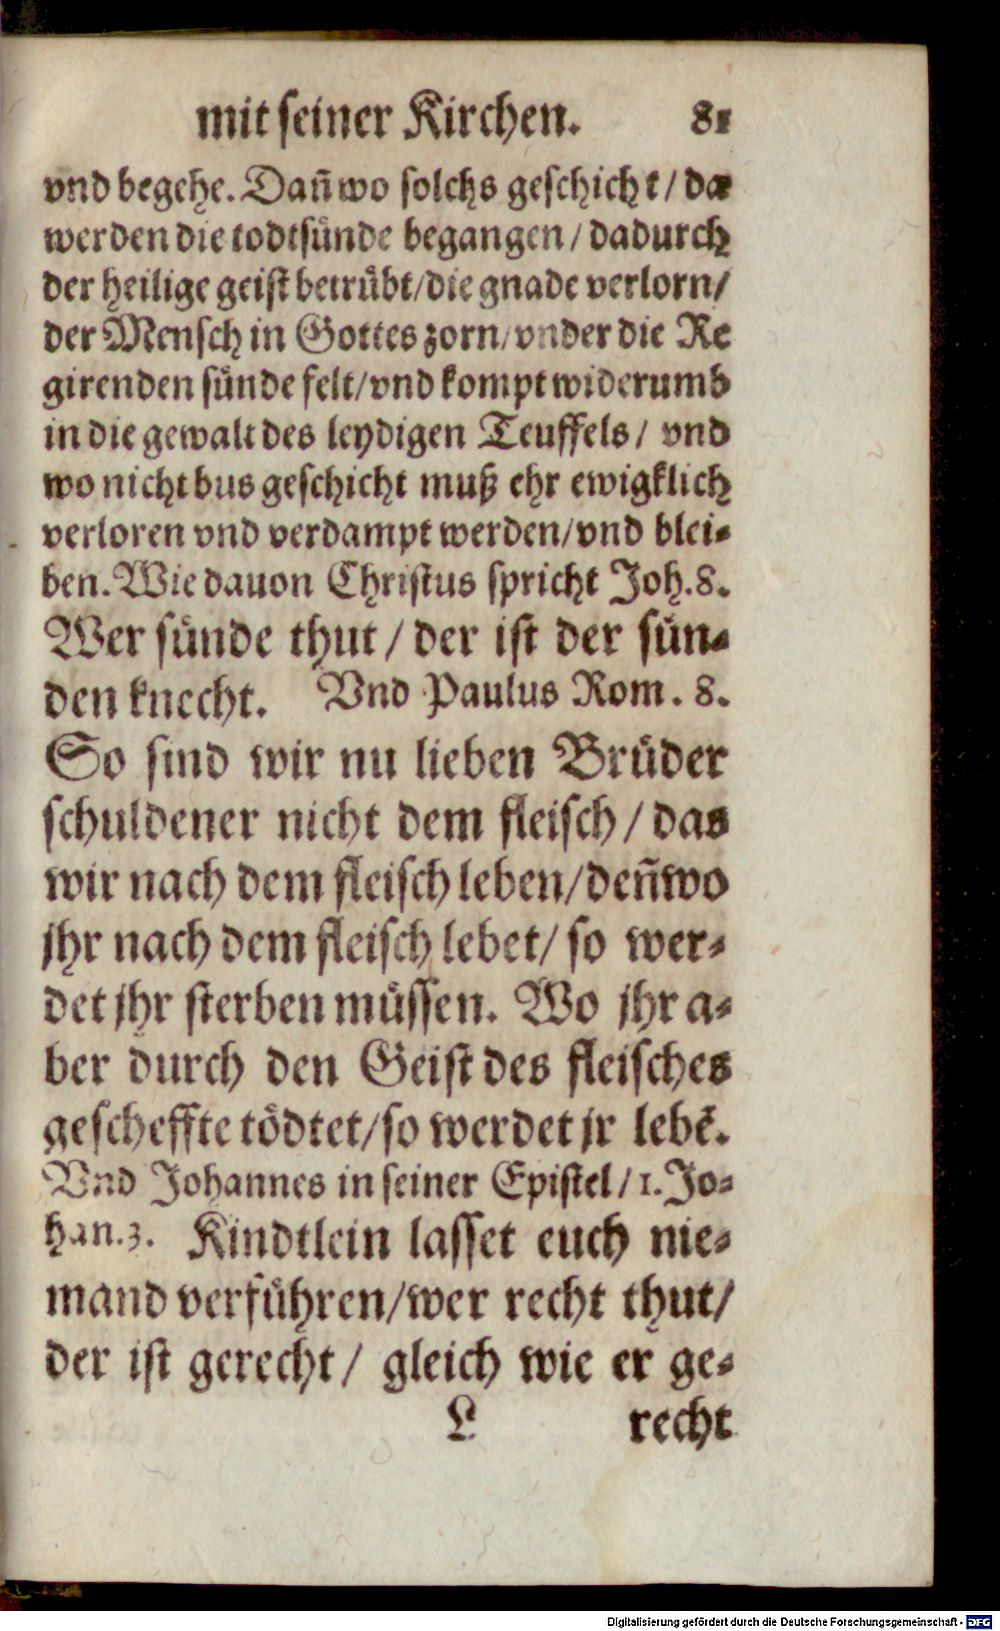 mit seiner Kirchen. 81
vnd begehe. Dañ wo solchs geschicht / da
werden die todtsünde begangen / dadurch
der heilige geist betrübt / die gnade verlorn /
der Mensch in Gottes zorn / vnder die Re
girenden sünde felt / vnd kompt widerumb
in die gewalt des leydigen Teuffels / vnd
wo nicht bus geschicht muß ehr ewigklich
verloren vnd verdampt werden / vnd blei-
ben. Wie dauon Christus spricht Joh. 8.
Wer sünde thut / der ist der sün-
den knecht. Vnd Paulus Rom. 8.
So sind wir nu lieben Brüder
schuldener nicht dem fleisch / das
wir nach dem fleisch leben / deñ wo
jhr nach dem fleisch lebet / so wer-
det jhr sterben müssen. Wo jhr a-
ber durch den Geist des fleisches
gescheffte tödtet / so werdet jr lebē.
Vnd Johannes in seiner Epistel / 1. Jo-
han. 3. Kindtlein lasset euch nie-
mand verführen / wer recht thut /
der ist gerecht / gleich wie er ge-
L recht
Digitalisierung gefördert durch die Deutsche Forschungsgemeinschaft - DFG